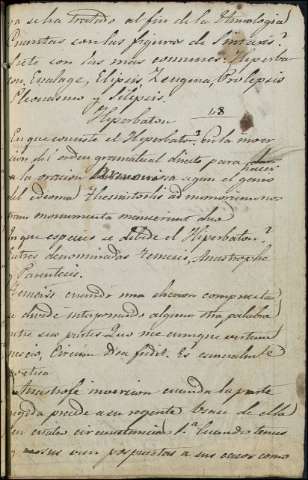 ya se ha tratado al fin de la Etimologia
Cuantas con las figuras de Sintaxis?
Siete son las mas comunes: Hiperba-
ton, Enalage, Elipsis, Zeugma, Prolepsis
Pleonasmo y Silepsis.
Hiperbaton 48
En que consiste el Hiperbaton? En la inver
sion del orden gramatical directo para hacer
a la oracion Armoniosa segun el genio
del idioma
monumenta manserunt duo
En que especies se divide el Hiperbaton?
entres denominadas Temesis, Anastrophe
Parentesis.
Temesis cuando una diccion compuesta
se divide interponiendo alguna otra palabra
entre sus partes Quo me cumque
Es
Anastrofe inversion cuando la parte
regida precede a su regente
en cuatro circunstancias 1.a Cuando tenus
y versus van pospuestas a sus casos como